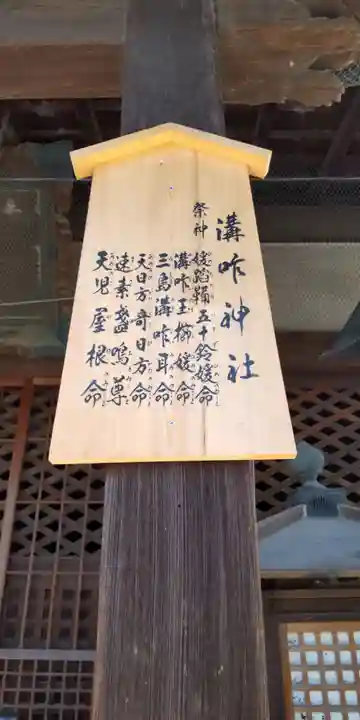 溝咋神社
祭神 媛蹈鞴五十鈴媛命
溝咋玉櫛媛命
三島溝咋耳命
天日方奇日方命
速素盞嗚尊
天児屋根命